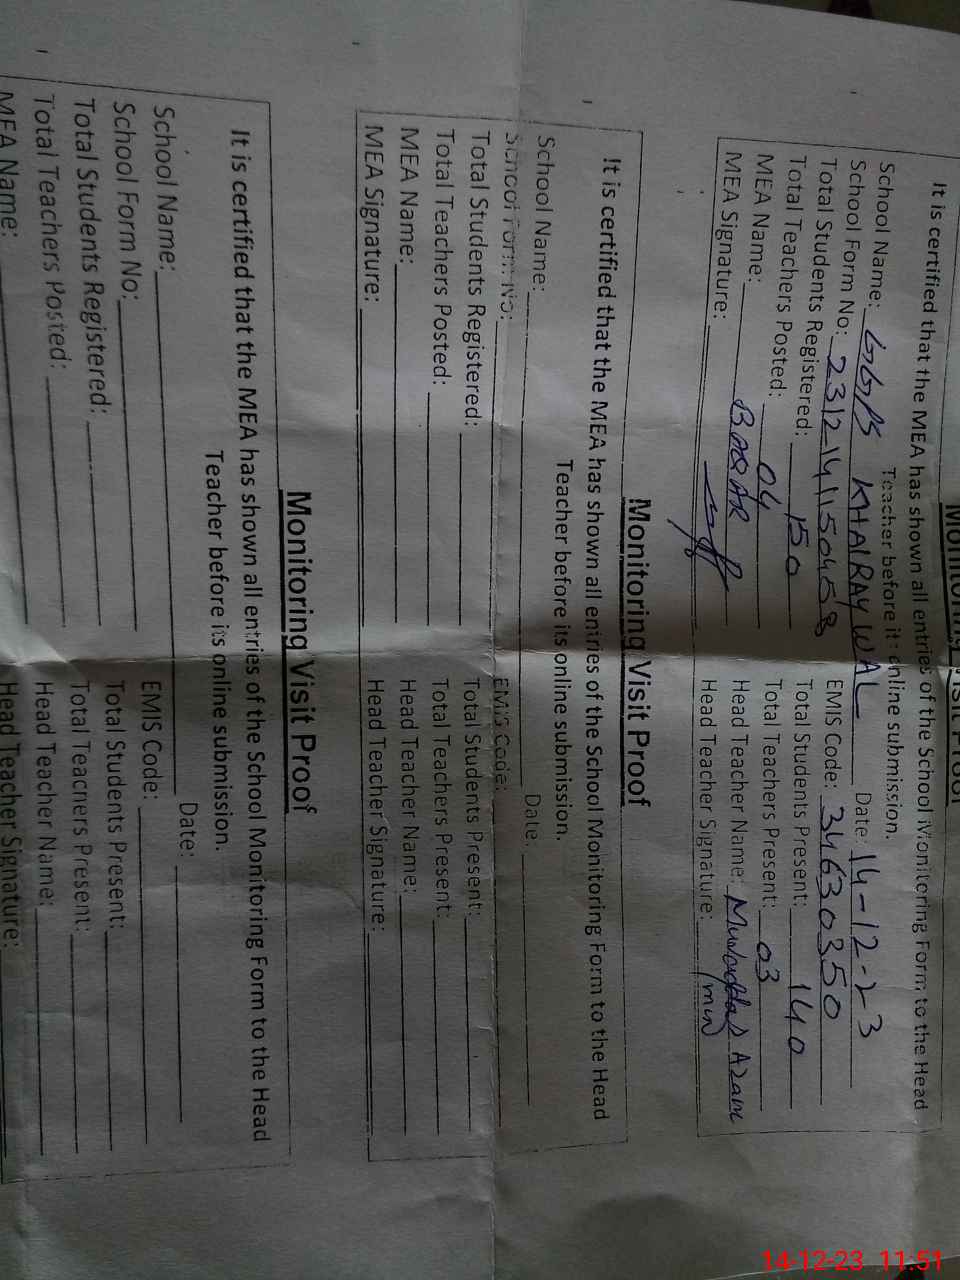 Monitoring Visit Proof
It is certified that the MEA has shown all entries of the School Monitoring Form to the Head
Teacher before its online submission.
School Name: GGPS KHAIRAYWAL Date: 14-12-23
School Form No: 2312141150458 EMIS Code: 34630350
Total Students Registered: 150 Total Students Present: 140
Total Teachers Posted: 04 Total Teachers Present: 03
MEA Name: BABAR Head Teacher Name: Azam
MEA Signature: Head Teacher Signature:
Monitoring Visit Proof
It is certified that the MEA has shown all entries of the School Monitoring Form to the Head
Teacher before its online submission.
School Name: Date:
School Form No: EMIS Code:
Total Students Registered: Total Students Present:
Total Teachers Posted: Total Teachers Present:
MEA Name: Head Teacher Name:
MEA Signature: Head Teacher Signature:
Monitoring Visit Proof
It is certified that the MEA has shown all entries of the School Monitoring Form to the Head
Teacher before its online submission.
School Name: Date:
School Form No: EMIS Code:
Total Students Registered: Total Students Present:
Total Teachers Posted: Total Teachers Present:
MEA Name: Head Teacher Name:
Head Teacher Signature:
14-12-23 11:51